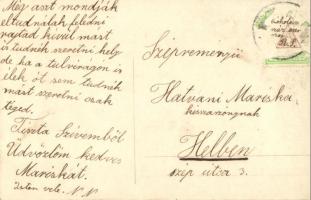 Még azt mondják
eltudnálak feledni
rajtad kívül mást
is tudnék szeretni hely
de ha a tulvirágon is
élek ott sem tudnék
mást szeretni csak
téged.
Tiszta Szivemből
Üdvözlöm kedves
Mariskát.
Isten vele. N N
Szépreményü
Hatvani Mariska
kisasszonynak
Helben
szép utca 3.